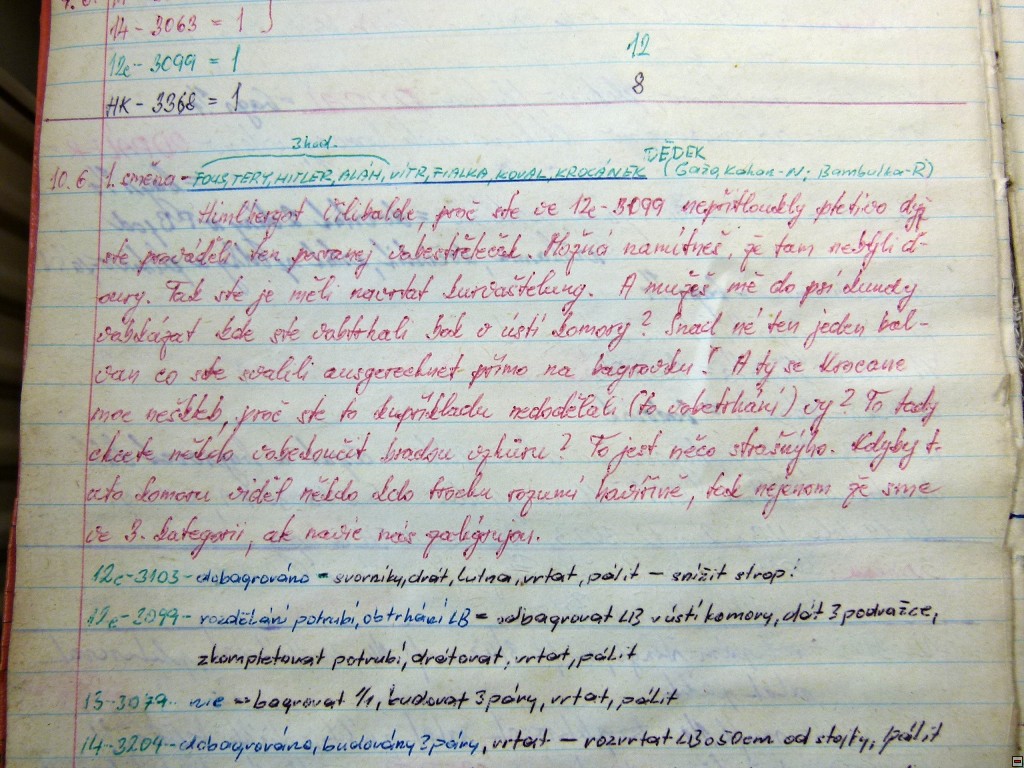 14-3063 = 1
12c-3099 = 1 12
HK-3368 = 1 8
3hod. DĚDEK
10.6 1. směna - FOUS, TERY, HITLER, ALÁH, VÍTR, FIALKA, KOVAL, KROCÁNEK (Gažo, Kahan-N; Bambulka-R)
Himlhergot Vilibalde, proč ste ve 12c-3099 nepřitloukly pletivo dyž
ste prováděli ten posranej vobestřeleček. Možná namítneš, že tam nebyli d-
oury. Tak ste je měli navrtat kurvaštelung. A můžeš mě do psí kundy
vobkázat kde ste vobtrhali bok v ústí komory? Snad né ten jeden bal-
van co ste svalili ausgerechnet přímo na bagrovku! A ty se Krocane
moc neškleb, proč ste to kupříkladu nedodělali (to vobetrhání) vy? To tady
chcete někdo vobkoučit bradou vzhůru? To jest něco strašnýho. Kdyby t-
uto komoru viděl někdo kdo trochu rozumí havířině, tak nejenom že sme
ve 3. kategorii, ale navíc nás galírujou.
12c-3103 - dobagrováno = svorníky, drát, lutna, vrtat, pálit - snížit strop!
12c-3099 - rozdělání potrubí, obtrhání LB = odbagrovat LB v ústí komory, dát 3 podražce,
zkompletovat potrubí, drátovat, vrtat, pálit
13-3079 - nic = bagrovat 1/1, budovat 3 páry, vrtat, pálit
14-3204 - dobagrováno, budovány 3 páry, vrtat - rozvrtat LB o 50cm od stojky, pálit